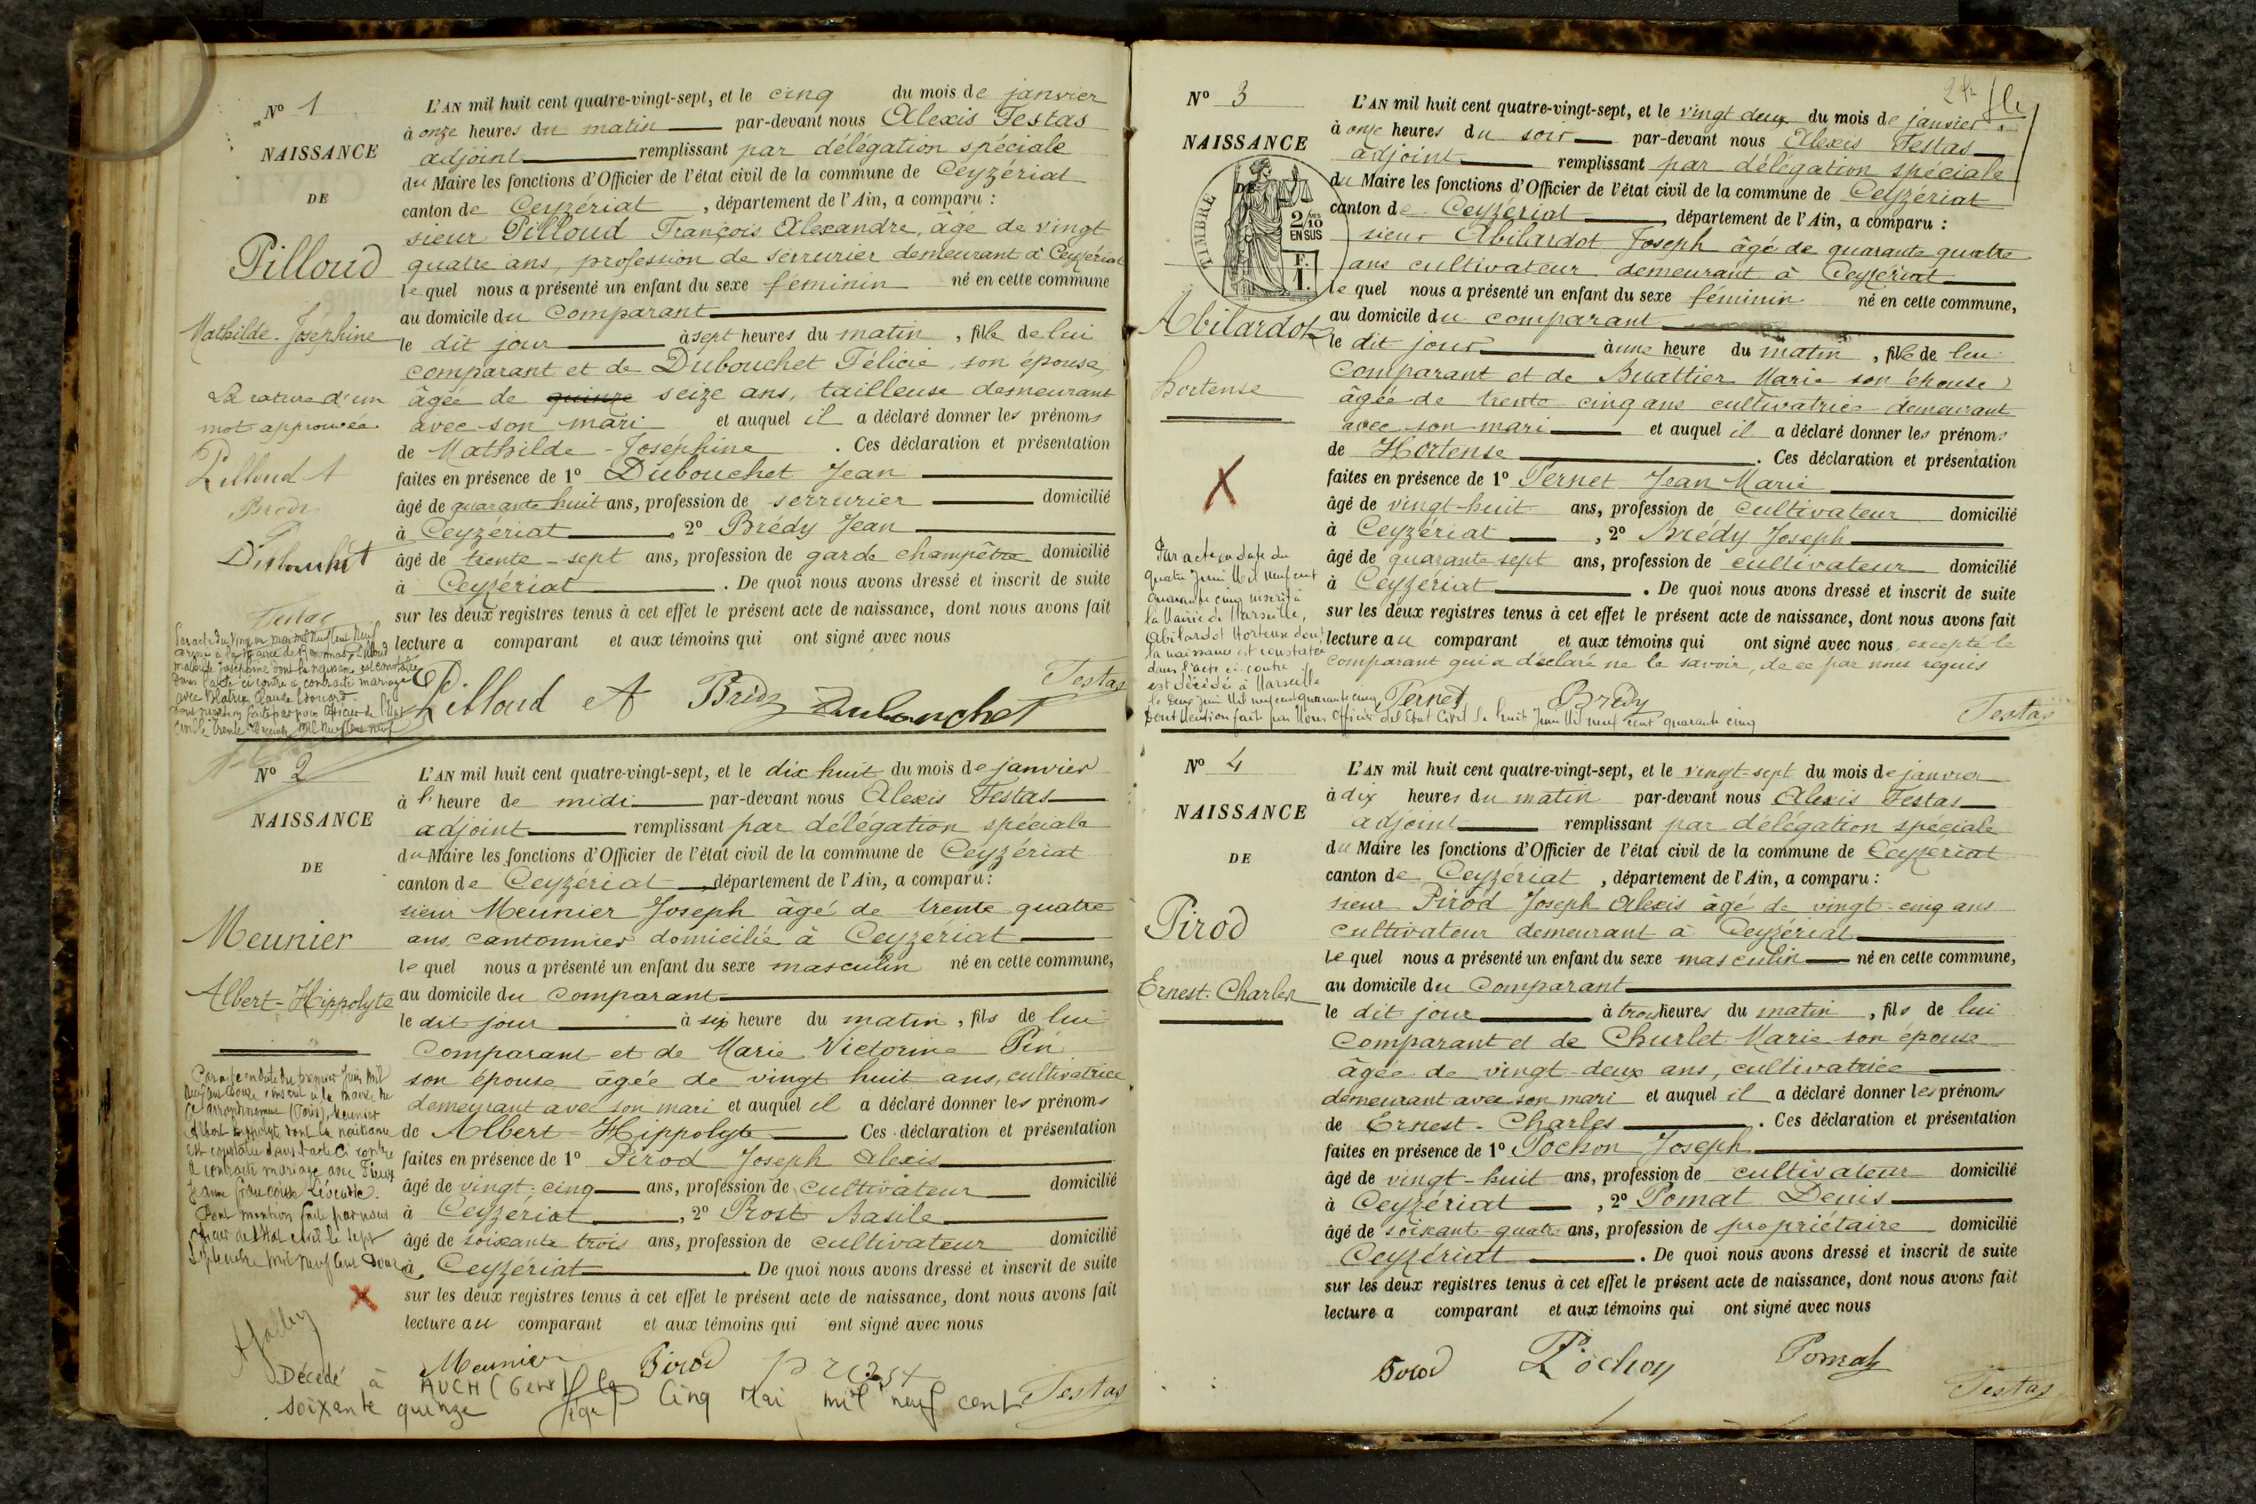 N° 1
NAISSANCE
DE
Pilloud
Mathilde-Joséphine
La rature d'un
mot approuvée
Pilloud A
Brédy
Dubouchet
Testas
L'AN mil huit cent quatre-vingt-sept, et le cinq du mois de janvier
à onze heures du matin par-devant nous Alexis Testas
adjoint remplissant par délégation spéciale
du Maire les fonctions d'Officier de l'état civil de la commune de Ceyzériat
canton de Ceyzériat, département de l'Ain, a comparu :
sieur Pilloud François Alexandre, âgé de vingt
quatre ans, profession de serrurier demeurant à Ceyzériat
lequel nous a présenté un enfant du sexe féminin né en cette commune
au domicile du comparant
le dit jour à sept heures du matin, fille de lui
comparant et de Dubouchet Félicie, son épouse,
âgée de quinze seize ans, tailleuse demeurant
avec son mari et auquel il a déclaré donner les prénoms
de Mathilde-Joséphine. Ces déclaration et présentation
faites en présence de 1° Dubouchet Jean
âgé de quarante huit ans, profession de serrurier domicilié
à Ceyzériat, 2° Brédy Jean
âgé de trente-sept ans, profession de garde champêtre domicilié
à Ceyzériat. De quoi nous avons dressé et inscrit de suite
sur les deux registres tenus à cet effet le présent acte de naissance, dont nous avons fait
lecture a comparant et aux témoins qui ont signé avec nous
Pilloud A Brédy Dubouchet Testas
Mathilde Joséphine dont la naissance est constatée
dans l'acte ci contre a contracté mariage
avec Claude Edouard
N° 2
NAISSANCE
DE
Meunier
Albert-Hippolyte
Par acte en date du premier Juin mil
neuf cent douze inscrit à la mairie du
arrondissement (Paris), Meunier
Albert Hippolyte dont la naissance
est constatée dans l'acte ci contre
a contracté mariage avec
Jeanne Françoise
Dont mention faite par nous
officier de l'état civil le sept
Septembre mil neuf cent douze
L'AN mil huit cent quatre-vingt-sept, et le dix huit du mois de janvier
à l'heure de midi par-devant nous Alexis Testas
adjoint remplissant par délégation spéciale
du Maire les fonctions d'Officier de l'état civil de la commune de Ceyzériat
canton de Ceyzériat, département de l'Ain, a comparu :
sieur Meunier Joseph âgé de trente quatre
ans cantonnier domicilié à Ceyzeriat
lequel nous a présenté un enfant du sexe masculin né en cette commune,
au domicile du comparant
le dit jour à six heure du matin, fils de lui
comparant et de Marie Victorine Pin
son épouse âgée de vingt huit ans, cultivatrice
demeurant avec son mari et auquel il a déclaré donner les prénoms
de Albert-Hippolyte Ces déclaration et présentation
faites en présence de 1° Pirod Joseph Alexis
âgé de vingt-cinq ans, profession de cultivateur domicilié
à Ceyzériat, 2° Prost Basile
âgé de soixante trois ans, profession de cultivateur domicilié
à Ceyzériat De quoi nous avons dressé et inscrit de suite
sur les deux registres tenus à cet effet le présent acte de naissance, dont nous avons fait
lecture au comparant et aux témoins qui ont signé avec nous
Meunier Pirod Prost Testas
Décédé à AUCH (Gers) le Cinq Mai mil neuf cent
soixante quinze
N° 3
NAISSANCE
DE
TIMBRE
2/10 EN SUS
F. 1.
Abilardot
Hortense
Par acte en date du
quatre Juin Mil neuf cent
quarante cinq inscrit à
la Mairie de Marseille,
Abilardot Hortense dont
la naissance est constatée
dans l'acte ci-contre
est décédée à Marseille
le deux Juin Mil neuf cent quarante cinq
Dont Mention faite par Nous Officier de l'Etat Civil le huit Juin Mil neuf cent quarante cinq
L'AN mil huit cent quatre-vingt-sept, et le vingt deux du mois de janvier
à onze heures du soir par-devant nous Alexis Testas
adjoint remplissant par délégation spéciale
du Maire les fonctions d'Officier de l'état civil de la commune de Ceyzériat
canton de Ceyzériat, département de l'Ain, a comparu :
sieur Abilardot Joseph âgé de quarante quatre
ans cultivateur demeurant à Ceyzériat
lequel nous a présenté un enfant du sexe féminin né en cette commune,
au domicile du comparant
le dit jour à une heure du matin, fille de lui
comparant et de Buattier Marie son épouse
âgée de trente cinq ans cultivatrice demeurant
avec son mari et auquel il a déclaré donner les prénoms
de Hortense. Ces déclaration et présentation
faites en présence de 1° Pernet Jean Marie
âgé de vingt-huit ans, profession de cultivateur domicilié
à Ceyzériat, 2° Brédy Joseph
âgé de quarante sept ans, profession de cultivateur domicilié
à Ceyzériat. De quoi nous avons dressé et inscrit de suite
sur les deux registres tenus à cet effet le présent acte de naissance, dont nous avons fait
lecture au comparant et aux témoins qui ont signé avec nous excepté le
comparant qui a déclaré ne le savoir, de ce par nous requis
Pernet Brédy Testas
N° 4
NAISSANCE
DE
Pirod
Ernest-Charles
L'AN mil huit cent quatre-vingt-sept, et le vingt-sept du mois de janvier
à dix heures du matin par-devant nous Alexis Testas
adjoint remplissant par délégation spéciale
du Maire les fonctions d'Officier de l'état civil de la commune de Ceyzériat
canton de Ceyzériat, département de l'Ain, a comparu :
sieur Pirod Joseph Alexis âgé de vingt-cinq ans
cultivateur demeurant à Ceyzériat
lequel nous a présenté un enfant du sexe masculin né en cette commune,
au domicile du comparant
le dit jour à trois heures du matin, fils de lui
comparant et de Churlet Marie son épouse
âgée de vingt-deux ans, cultivatrice
demeurant avec son mari et auquel il a déclaré donner les prénoms
de Ernest-Charles. Ces déclaration et présentation
faites en présence de 1° Pochon Joseph
âgé de vingt-huit ans, profession de cultivateur domicilié
à Ceyzériat, 2° Pomat Denis
âgé de soixant quatre ans, profession de propriétaire domicilié
Ceyzériat. De quoi nous avons dressé et inscrit de suite
sur les deux registres tenus à cet effet le présent acte de naissance, dont nous avons fait
lecture a comparant et aux témoins qui ont signé avec nous
Pirod Pochon Pomat
Testas